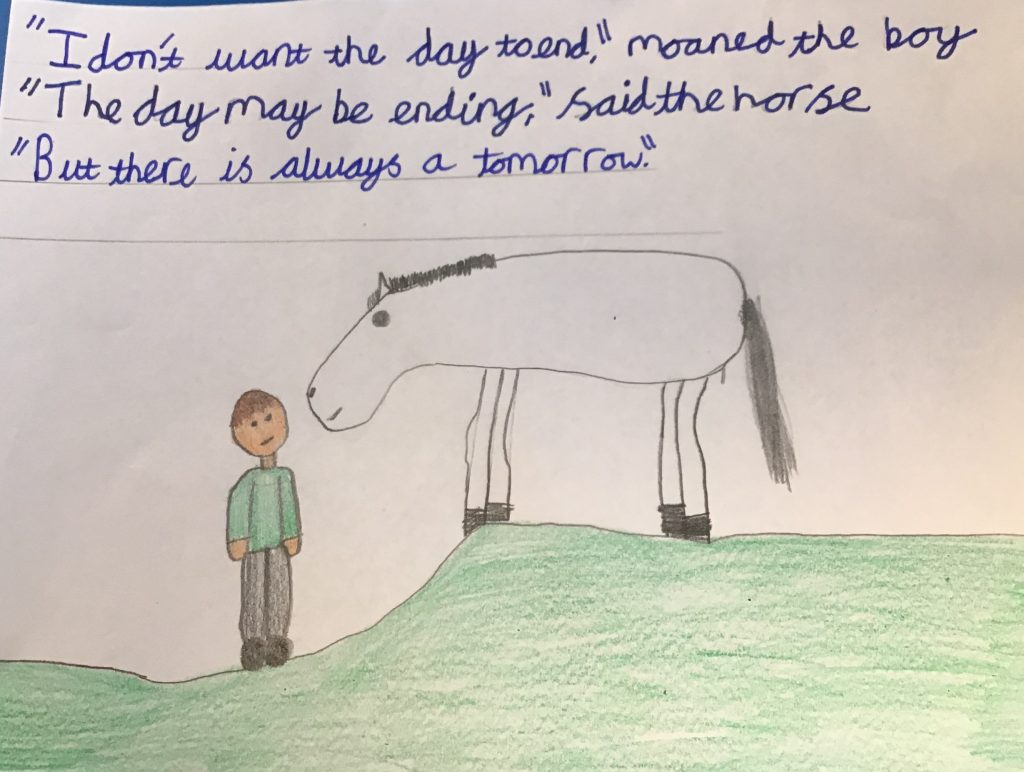 "I don't want the day to end," moaned the boy
"The day may be ending," said the horse
"But there is always a tomorrow."